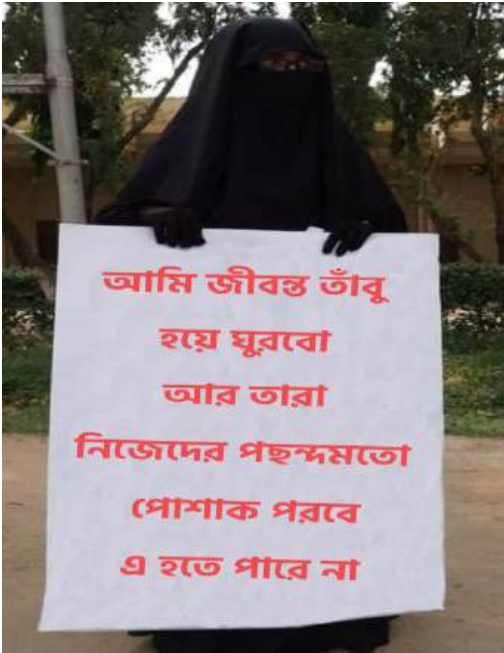 আমি জীবন্ত তাঁবু
হয়ে ঘুরবো
আর তারা
নিজেদের পছন্দমতো
পোশাক পরবে
এ হতে পারে না